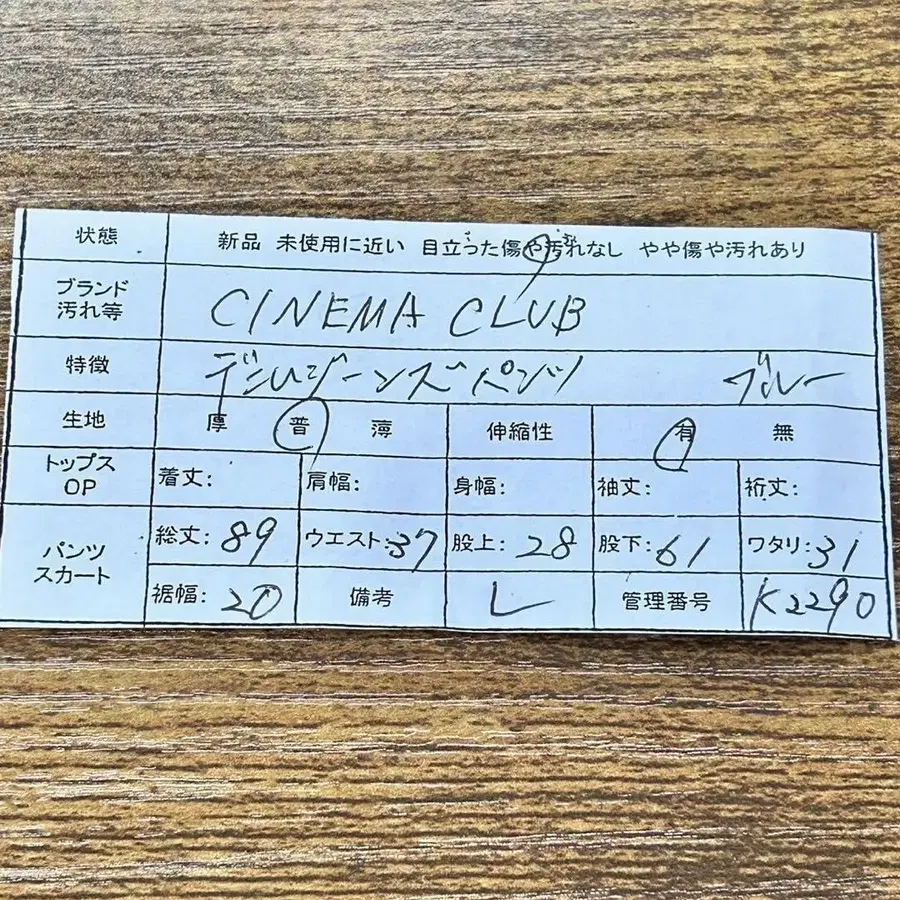 状態 新品 未使用に近い 目立った傷や汚れなし やや傷や汚れあり
ブランド
汚れ等 CINEMA CLUB
特徴 デニムジーンズパンツ ブルー
生地 厚 普 薄 伸縮性 有 無
トップス
OP 着丈: 肩幅: 身幅: 袖丈: 裄丈:
パンツ
スカート 総丈:89 ウエスト:37 股上:28 股下:61 ワタリ:31
裾幅:20 備考 L 管理番号 K2290